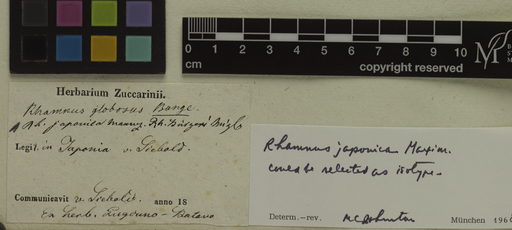 0 1 2 3 4 5 6 7 8 9 10
cm
copyright reserved
Herbarium Zuccarinii.
Rhamnus globosus Bunge.
Rh. japonica Maxim. Rh. Bürgeri
Legit. in Japonia v. Siebold.
Communicavit v. Siebold. anno 18
Ex herb. Lugduno-Batavo
Rhamnus japonica Maxim.
could be selected as isotype.
Determ.–rev. M C Johnston München 196